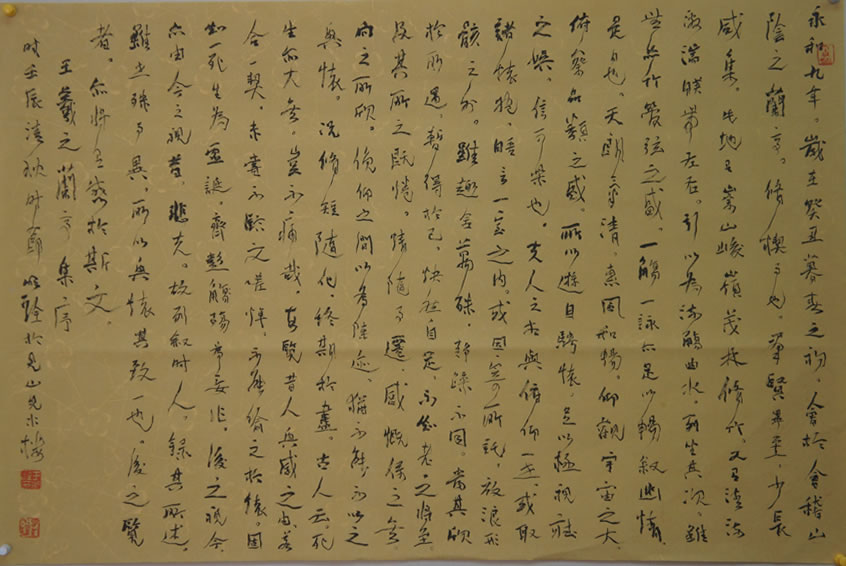 永和九年。歲在癸丑暮春之初。會於會稽山
陰之蘭亭。修禊事也。群賢畢至。少長
咸集。此地有崇山峻嶺茂林修竹。又有清流
激湍映帶左右。引以為流觴曲水列坐其次。雖
無絲竹管弦之盛。一觴一詠亦足以暢敘幽情。
是日也。天朗氣清。惠風和暢。仰觀宇宙之大。
俯察品類之盛。所以遊目騁懷。足以極視聽
之娛。信可樂也。夫人之相與俯仰一世。或取
諸懷抱。晤言一室之內。或因寄所託。放浪形
骸之外。雖趣舍萬殊。靜躁不同。當其欣
於所遇。暫得於己。快然自足。不知老之將至
及其所之既倦。情隨事遷。感慨係之矣。
向之所欣。俛仰之間以為陳迹。猶不能不以之
興懷。況修短隨化。終期於盡。古人云死
生亦大矣。豈不痛哉 每覽昔人興感之由若
合一契。未嘗不臨文嗟悼。不能喻之於懷。固
知一死生為虛誕。齊彭殤為妄作。後之視今
亦由今之視昔。悲夫。故列敘時人。錄其所述。
雖世殊事異。所以興懷其致一也。後之覽
者。亦將有感於斯文。
王羲之蘭亭集序
時壬辰清秋